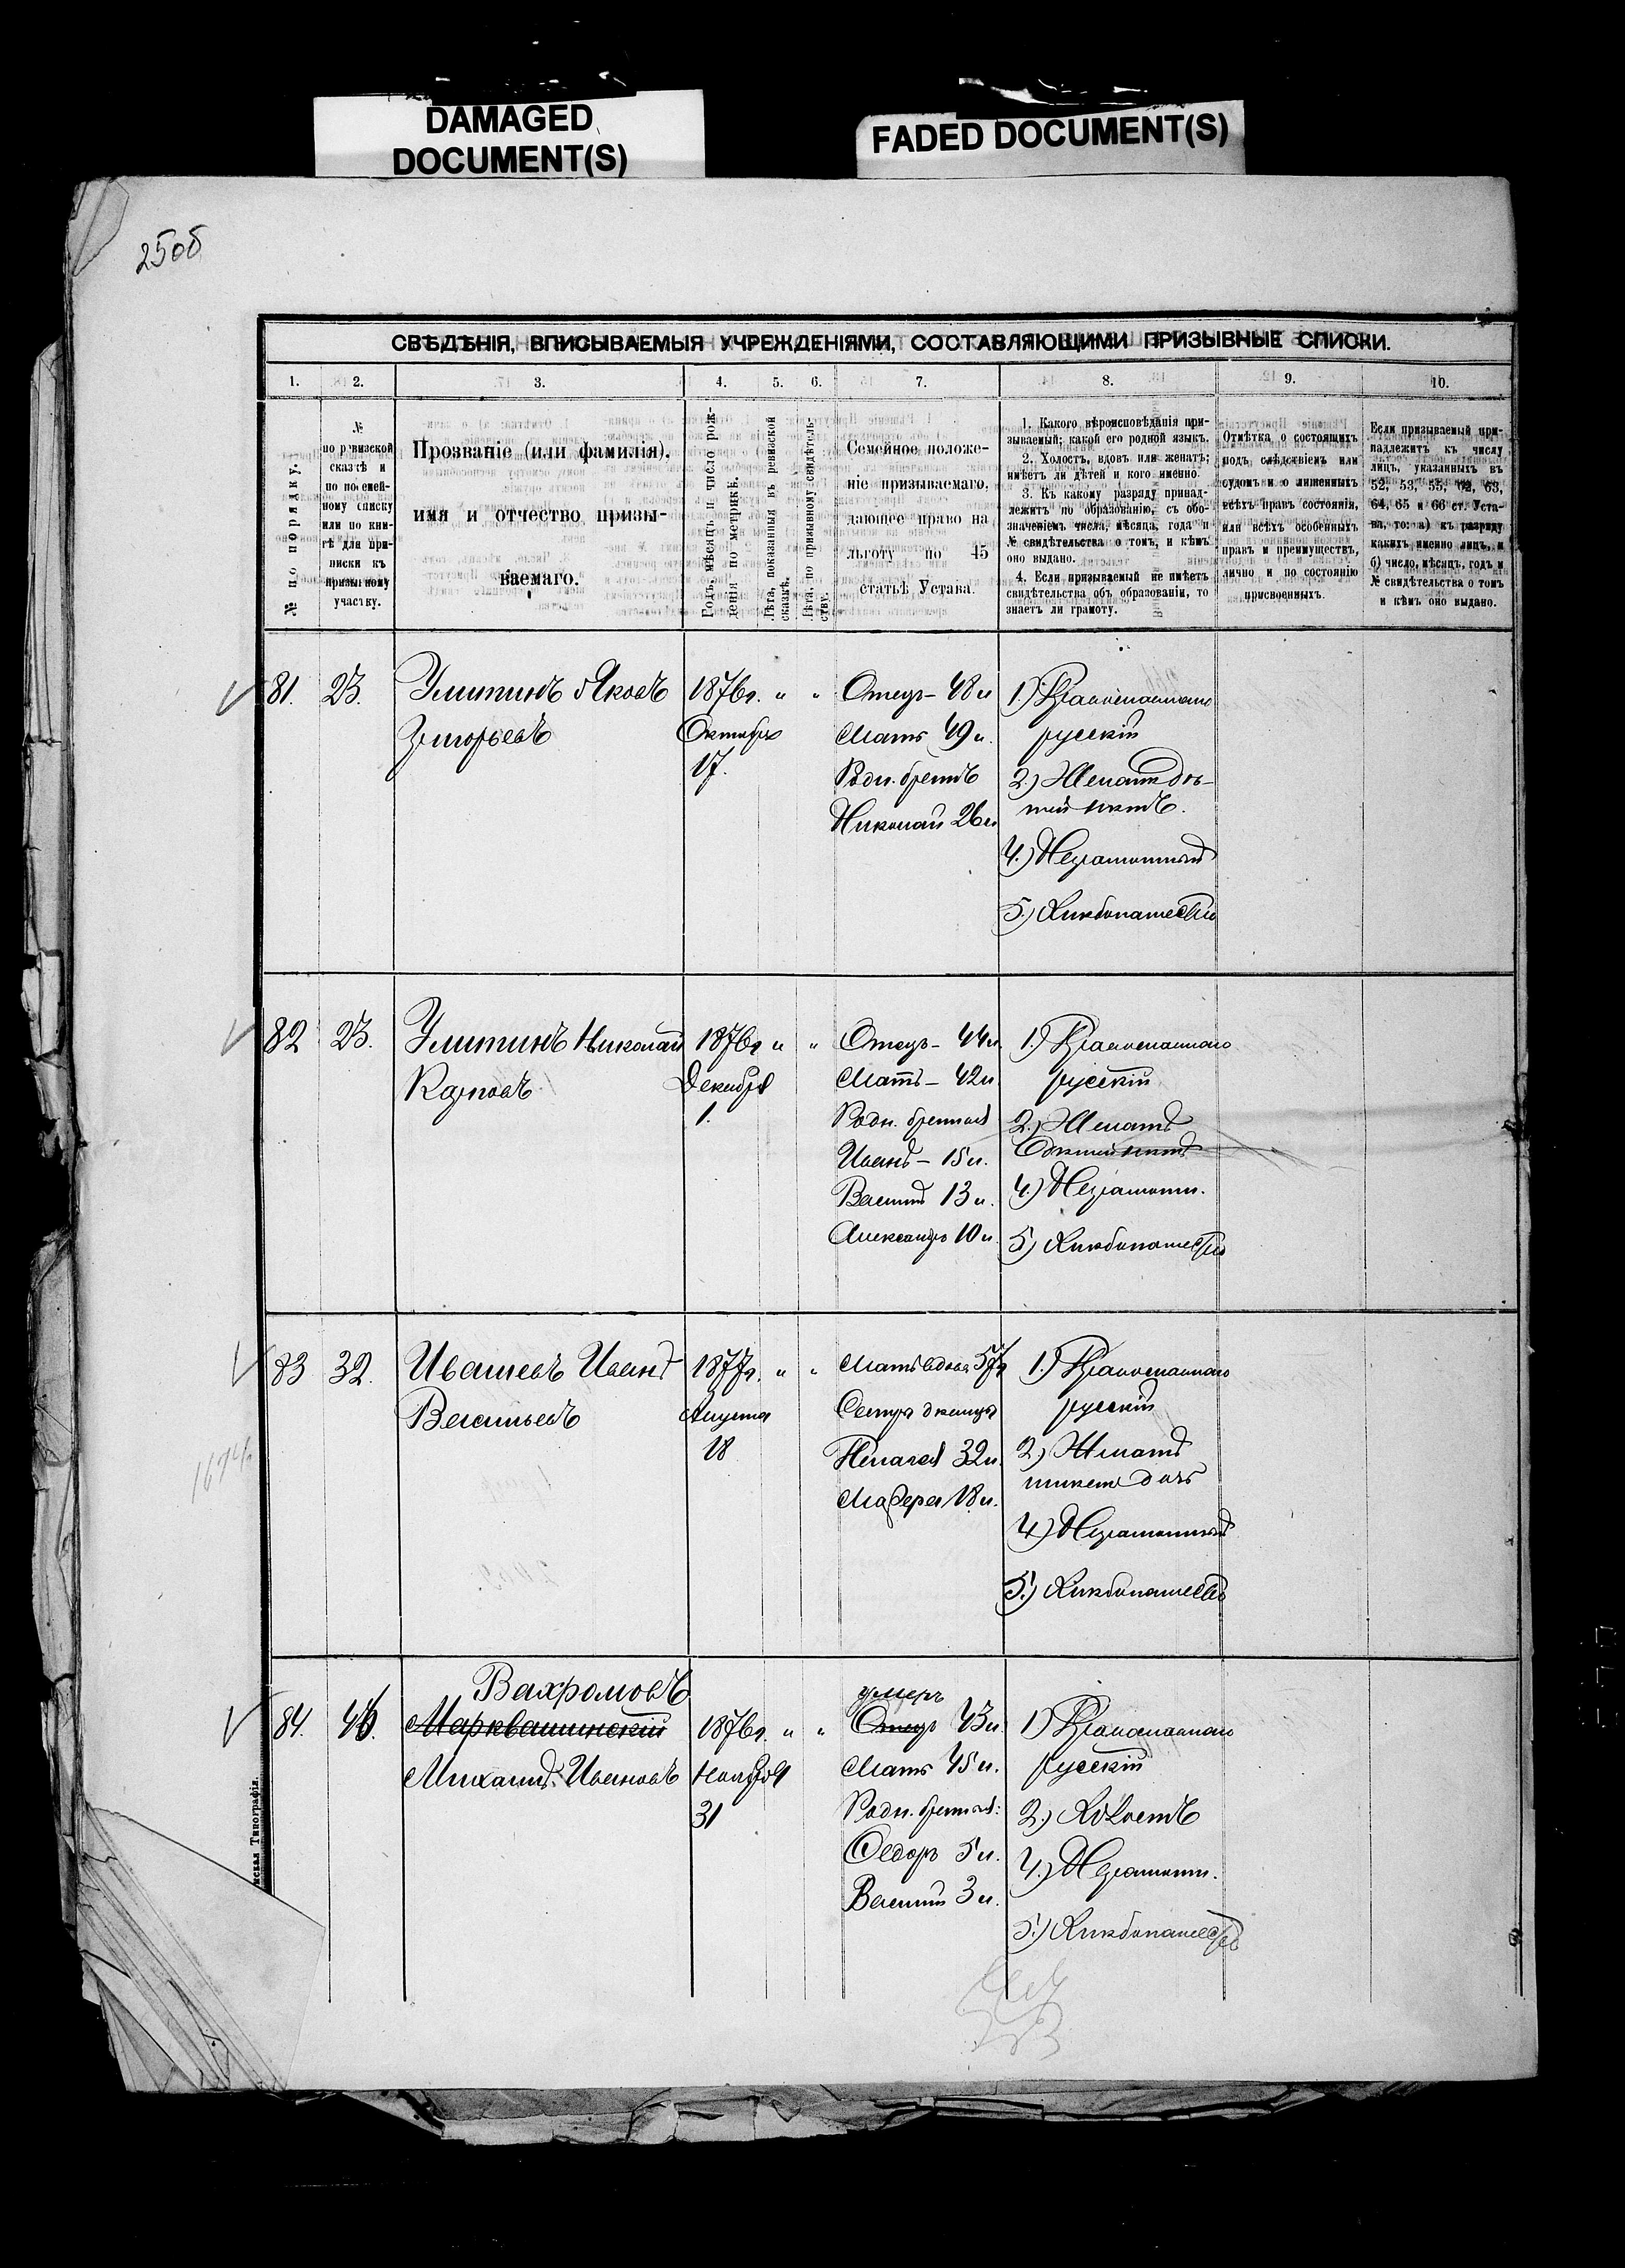 DAMAGED
DOCUMENT(S)
FADED DOCUMENT(S)
250б
СВѢДѢНІЯ, ВПИСЫВАЕМЫЯ УЧРЕЖДЕНІЯМИ, СОСТАВЛЯЮЩИМИ ПРИЗЫВНЫЕ СПИСКИ.
1. 2. 3. 4. 5. 6. 7. 8. 9. 10.
№ по порядку.
№
по ревизской
сказкѣ и
по посемей-
ному списку
или по кни-
гѣ для при-
писки къ
призывному
участку.
Прозваніе (или фамилія),
имя и отчество призы-
ваемаго.
Годъ, мѣсяцъ и число рож-
денія по метрикѣ.
Лѣта, показанныя въ ревизской
сказкѣ.
Лѣта, по призывному свидѣтель-
ству.
Семейное положе-
ніе призываемаго,
дающее право на
льготу по 45
статьѣ Устава.
1. Какого вѣроисповѣданія при-
зываемый; какой его родной языкъ.
2. Холостъ, вдовъ или женатъ;
имѣетъ ли дѣтей и кого именно.
3. Къ какому разряду принад-
лежитъ по образованію, съ обо-
значеніемъ числа, мѣсяца, года и
№ свидѣтельства о томъ, и кѣмъ
оно выдано.
4. Если призываемый не имѣетъ
свидѣтельства объ образованіи, то
знаетъ ли грамоту.
Отмѣтка о состоящихъ
подъ слѣдствіемъ или
судомъ и о лишенныхъ
всѣхъ правъ состоянія,
или всѣхъ особенныхъ
правъ и преимуществъ,
лично и по состоянію
присвоенныхъ.
Если призываемый при-
надлежитъ къ числу
лицъ, указанныхъ въ
52, 53, 55, 62, 63,
64, 65 и 66 ст. Уста-
ва, то: а) къ разряду
какихъ именно лицъ, и
б) число, мѣсяцъ, годъ и
№ свидѣтельства о томъ
и кѣмъ оно выдано.
81. 23. Улитинъ Яковъ
Григорьевъ
1876г. " "
Октября
17.
Отецъ - 48 л
Мать 49 л.
Родн. братъ
Николай 26 л
1.) Православнаго
русскій
2.) Женатъ дѣ-
тей нѣтъ.
4.) Неграмотный
5.) Хлѣбопашество
82 23. Улитинъ Николай
Карповъ
1876г " "
Декабря
1.
Отецъ - 44 л.
Мать - 42 л
Родн. братья
Иванъ - 15 л.
Василій 13 л.
Александръ 10 л.
1.) Православнаго
русскій
2.) Женатъ
4.) Неграмотн.
5.) Хлѣбопашество
83 32. Ивашевъ Иванъ
Васильевъ
1877г. " "
Августа
18
Мать вдова 57 л
Сестры дѣвицы
Пелагея 32 л.
18 л.
1.) Православнаго
русскій
2.) Женатъ
имѣетъ дочь
4.) Неграмотный
5.) Хлѣбопашество
1674.
84. 46. Вахромовъ
Марквашинскій
Михаилъ Ивановъ
1876г. " "
Ноября
31
умеръ
Отецъ 43 л
Мать 45 л.
Родн. братья:
Федоръ 5 л.
Василій 3 л.
1) Православнаго
русскій
2.) Холостъ
4.) Неграмотн.
5.) Хлѣбопашество
Типографія.